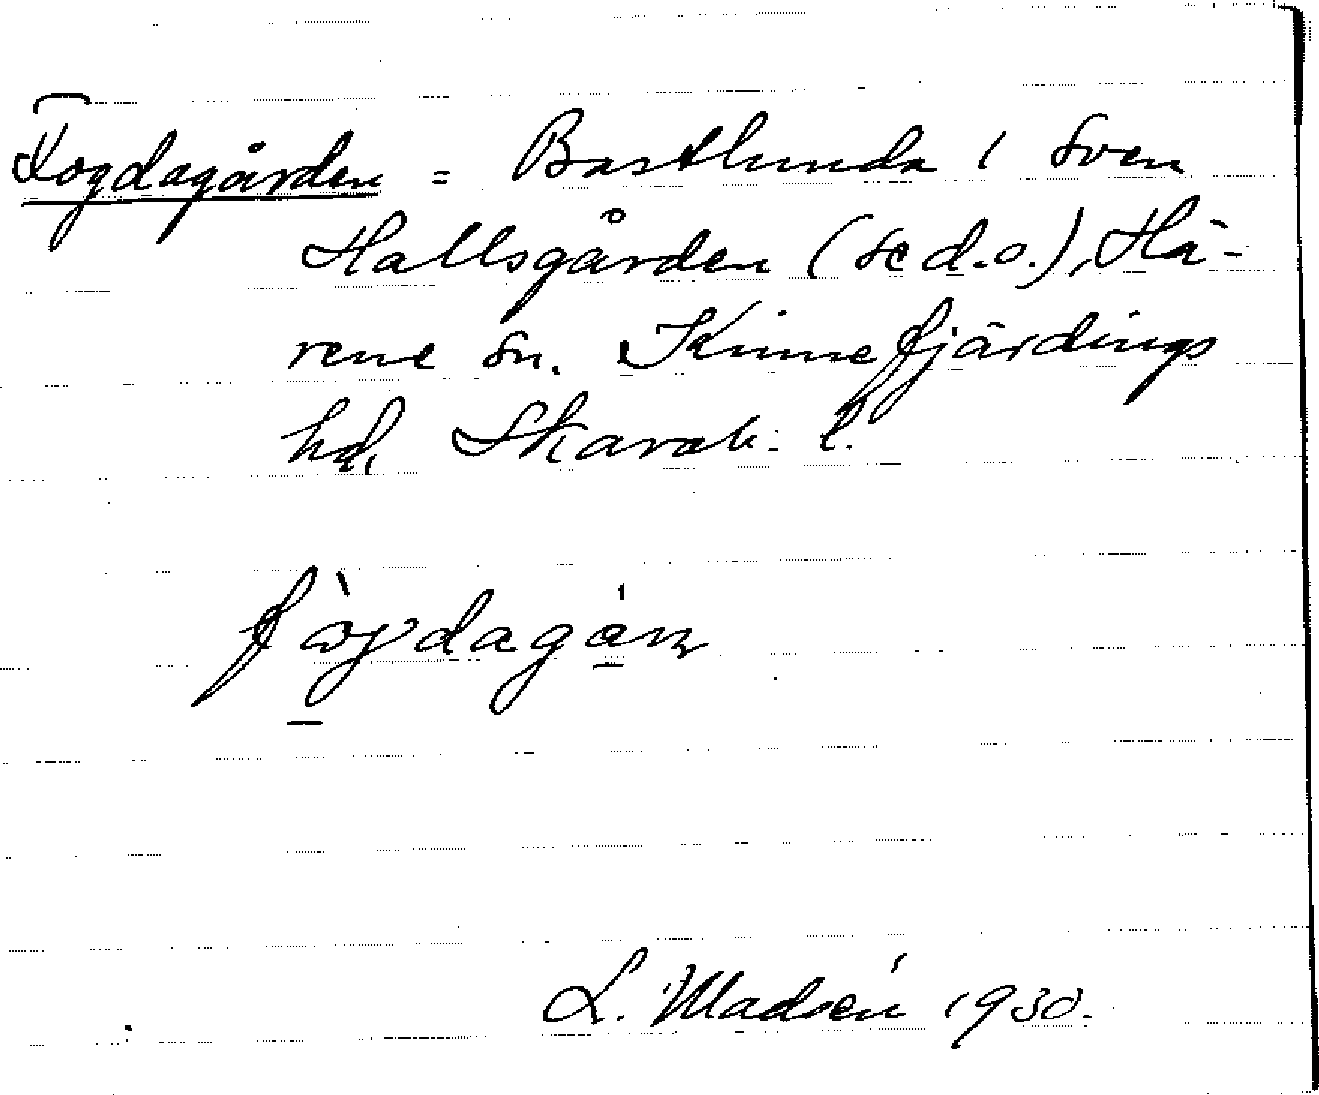 Fogdagården = Bastlunda 1 Sven
Hallsgården (se d.o.), Hä-
rene sn. Kinnefjärdings
hd, Skarab. l.
L. Madsén 1930.